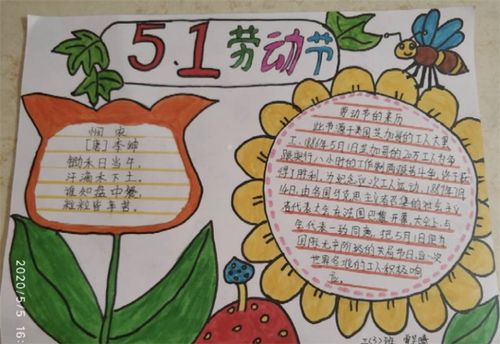 5.1劳动节
悯农
[唐]李绅
锄禾日当午,
汗滴禾下土。
谁知盘中餐,
粒粒皆辛苦。
劳动节的来历
此节源于美国芝加哥的工人大罢
工,1886年5月1日芝加哥的20万工人为争
取实行八小时的工作制而举行大罢工,终于获
得了胜利,为纪念这次工人运动,1889年7月
14日,由各国马克思主义者召集的社会主义
者代表大会在法国巴黎开幕,大会上,与
会代表一致同意,把5月1日定为
国际无产阶级的共同节日。这一决
世界各地的工人积极响
应。
2020/5/5 16:
二(3)班